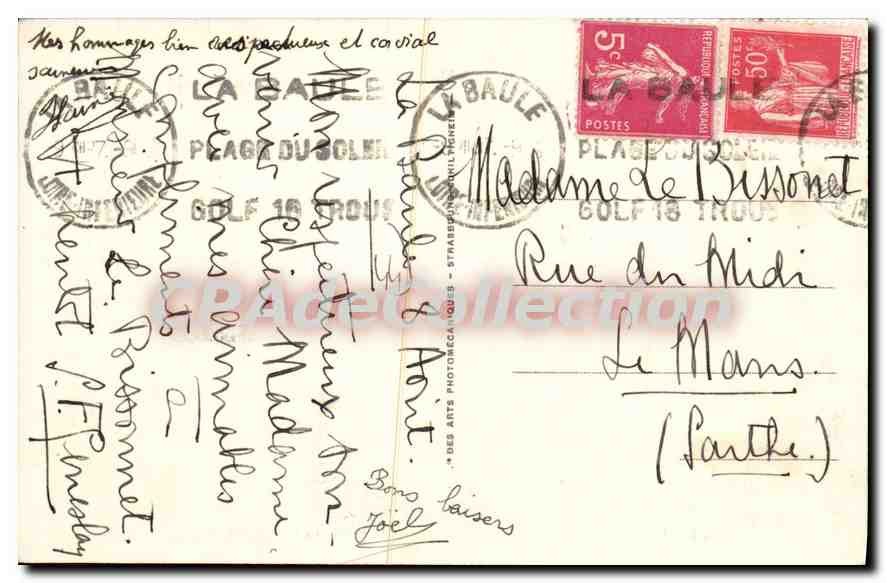 Mes hommages bien respectueux et cordial
souvenir
La Baule 8 Août.
Mon respectueux
Chère Madame
avec mes aimables
sentiments à
Monsieur Le Bissonnet.
Bons baisers
Joël
LA BAULE
LOIRE-INFERIEURE
LA BAULE
PLAGE DU SOLEIL
GOLF 18 TROUS
LA BAULE
LOIRE-INFERIEURE
LA BAULE
PLAGE DU SOLEIL
GOLF 18 TROUS
5c
REPUBLIQUE FRANÇAISE
POSTES
POSTES
50c
REPUBLIQUE FRANÇAISE
DES ARTS PHOTOMÉCANIQUES - STRASBOURG-SCHILTIGHEIM
Madame Le Bissonet
Rue du Midi
Le Mans.
(Sarthe.)
CPAdeCollection